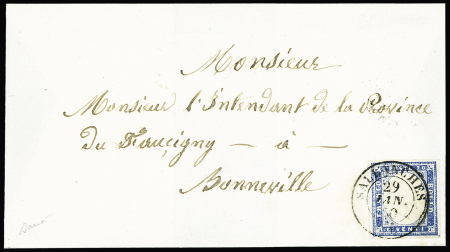 Monsieur
Monsieur l'Intendant de la Province
du Faucigny — à —
Bonneville
SALLANCHES
29
JAN.